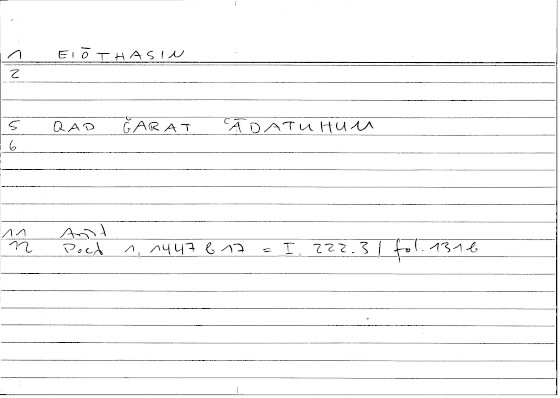 1 EIŌTHASIN
2
5 QAD ǦARAT ʿĀDATUHUM
6
11 Arist
12 Poet 1, 1447 b 17 = I. 222.3 / fol. 131 b